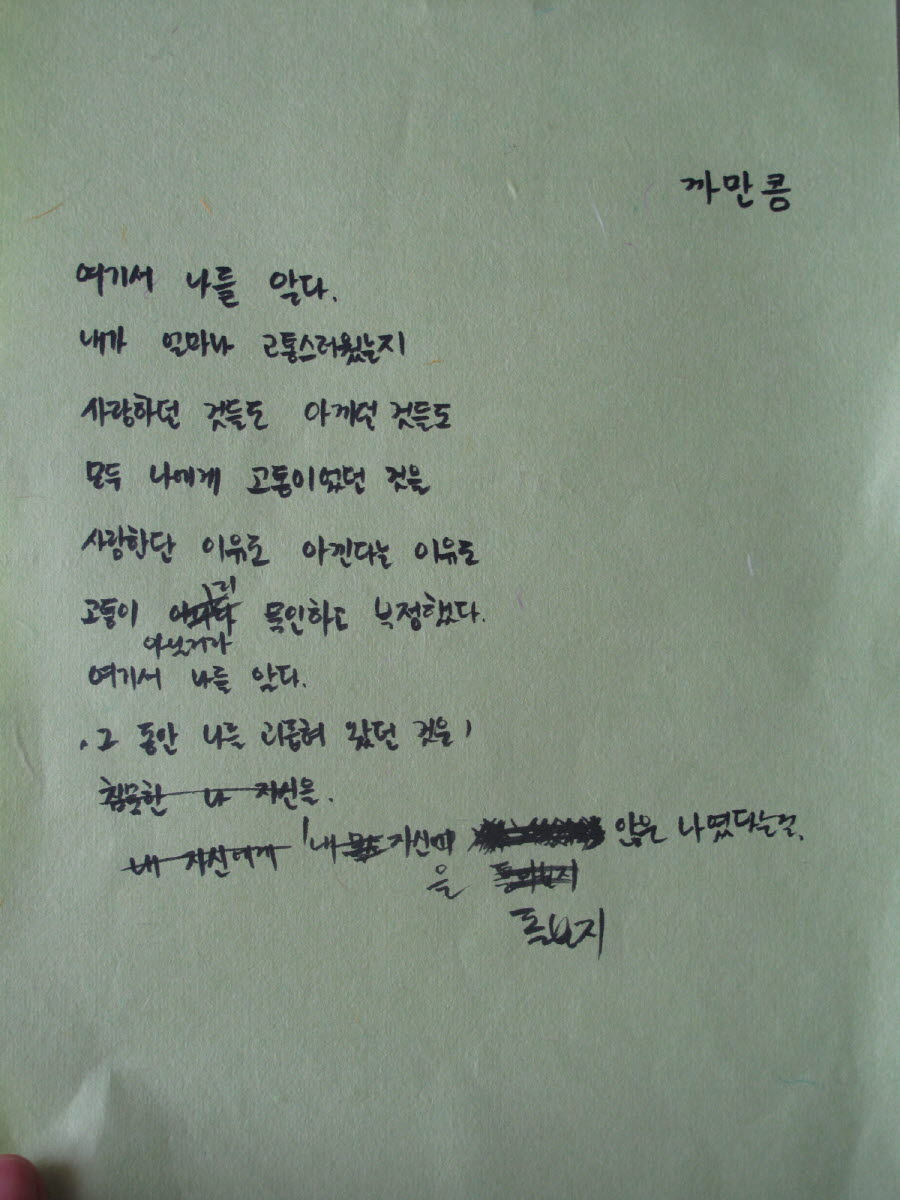 까만콩
여기서 나를 알다.
내가 얼마나 고통스러웠는지
사랑하던 것들도 아끼던 것들도
모두 나에게 고통이었던 것을
사랑한단 이유로 아낀다는 이유로
고통이 묵인하고 부정했다.
아닌거라
여기서 나를 알다.
그 동안 나를 괴롭혀 왔던 것은
침묵한 나 자신을.
내 자신에게 내 자신 않은 나였다는걸.
을
돌보지